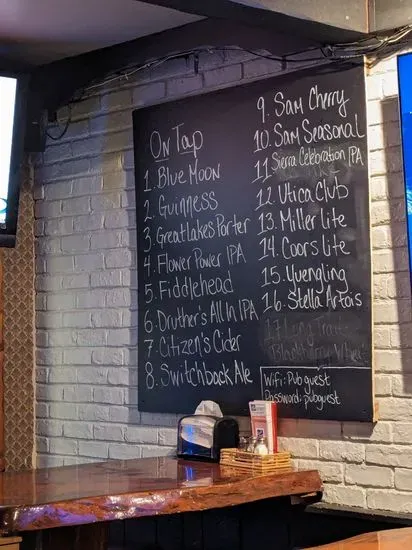 On Tap
1. Blue Moon
2. Guinness
3. Great Lakes Porter
4. Flower Power IPA
5. Fiddlehead
6. Druther's All In IPA
7. Citizen's Cider
8. Switchback Ale
9. Sam Cherry
10. Sam Seasonal
11. Sierra Celebration IPA
12. Utica Club
13. Miller Lite
14. Coors Lite
15. Yuengling
16. Stella Artois
17. Long Trail
Blackberry Wheat
Wifi: Pubguest
Password: pubguest